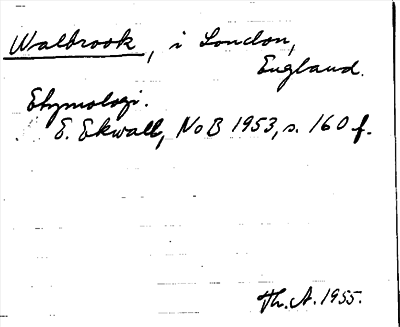 Walbrook, i London,
England.
Etymologi.
E. Ekwall, NoB 1953, s. 160 f.
Th. A. 1955.